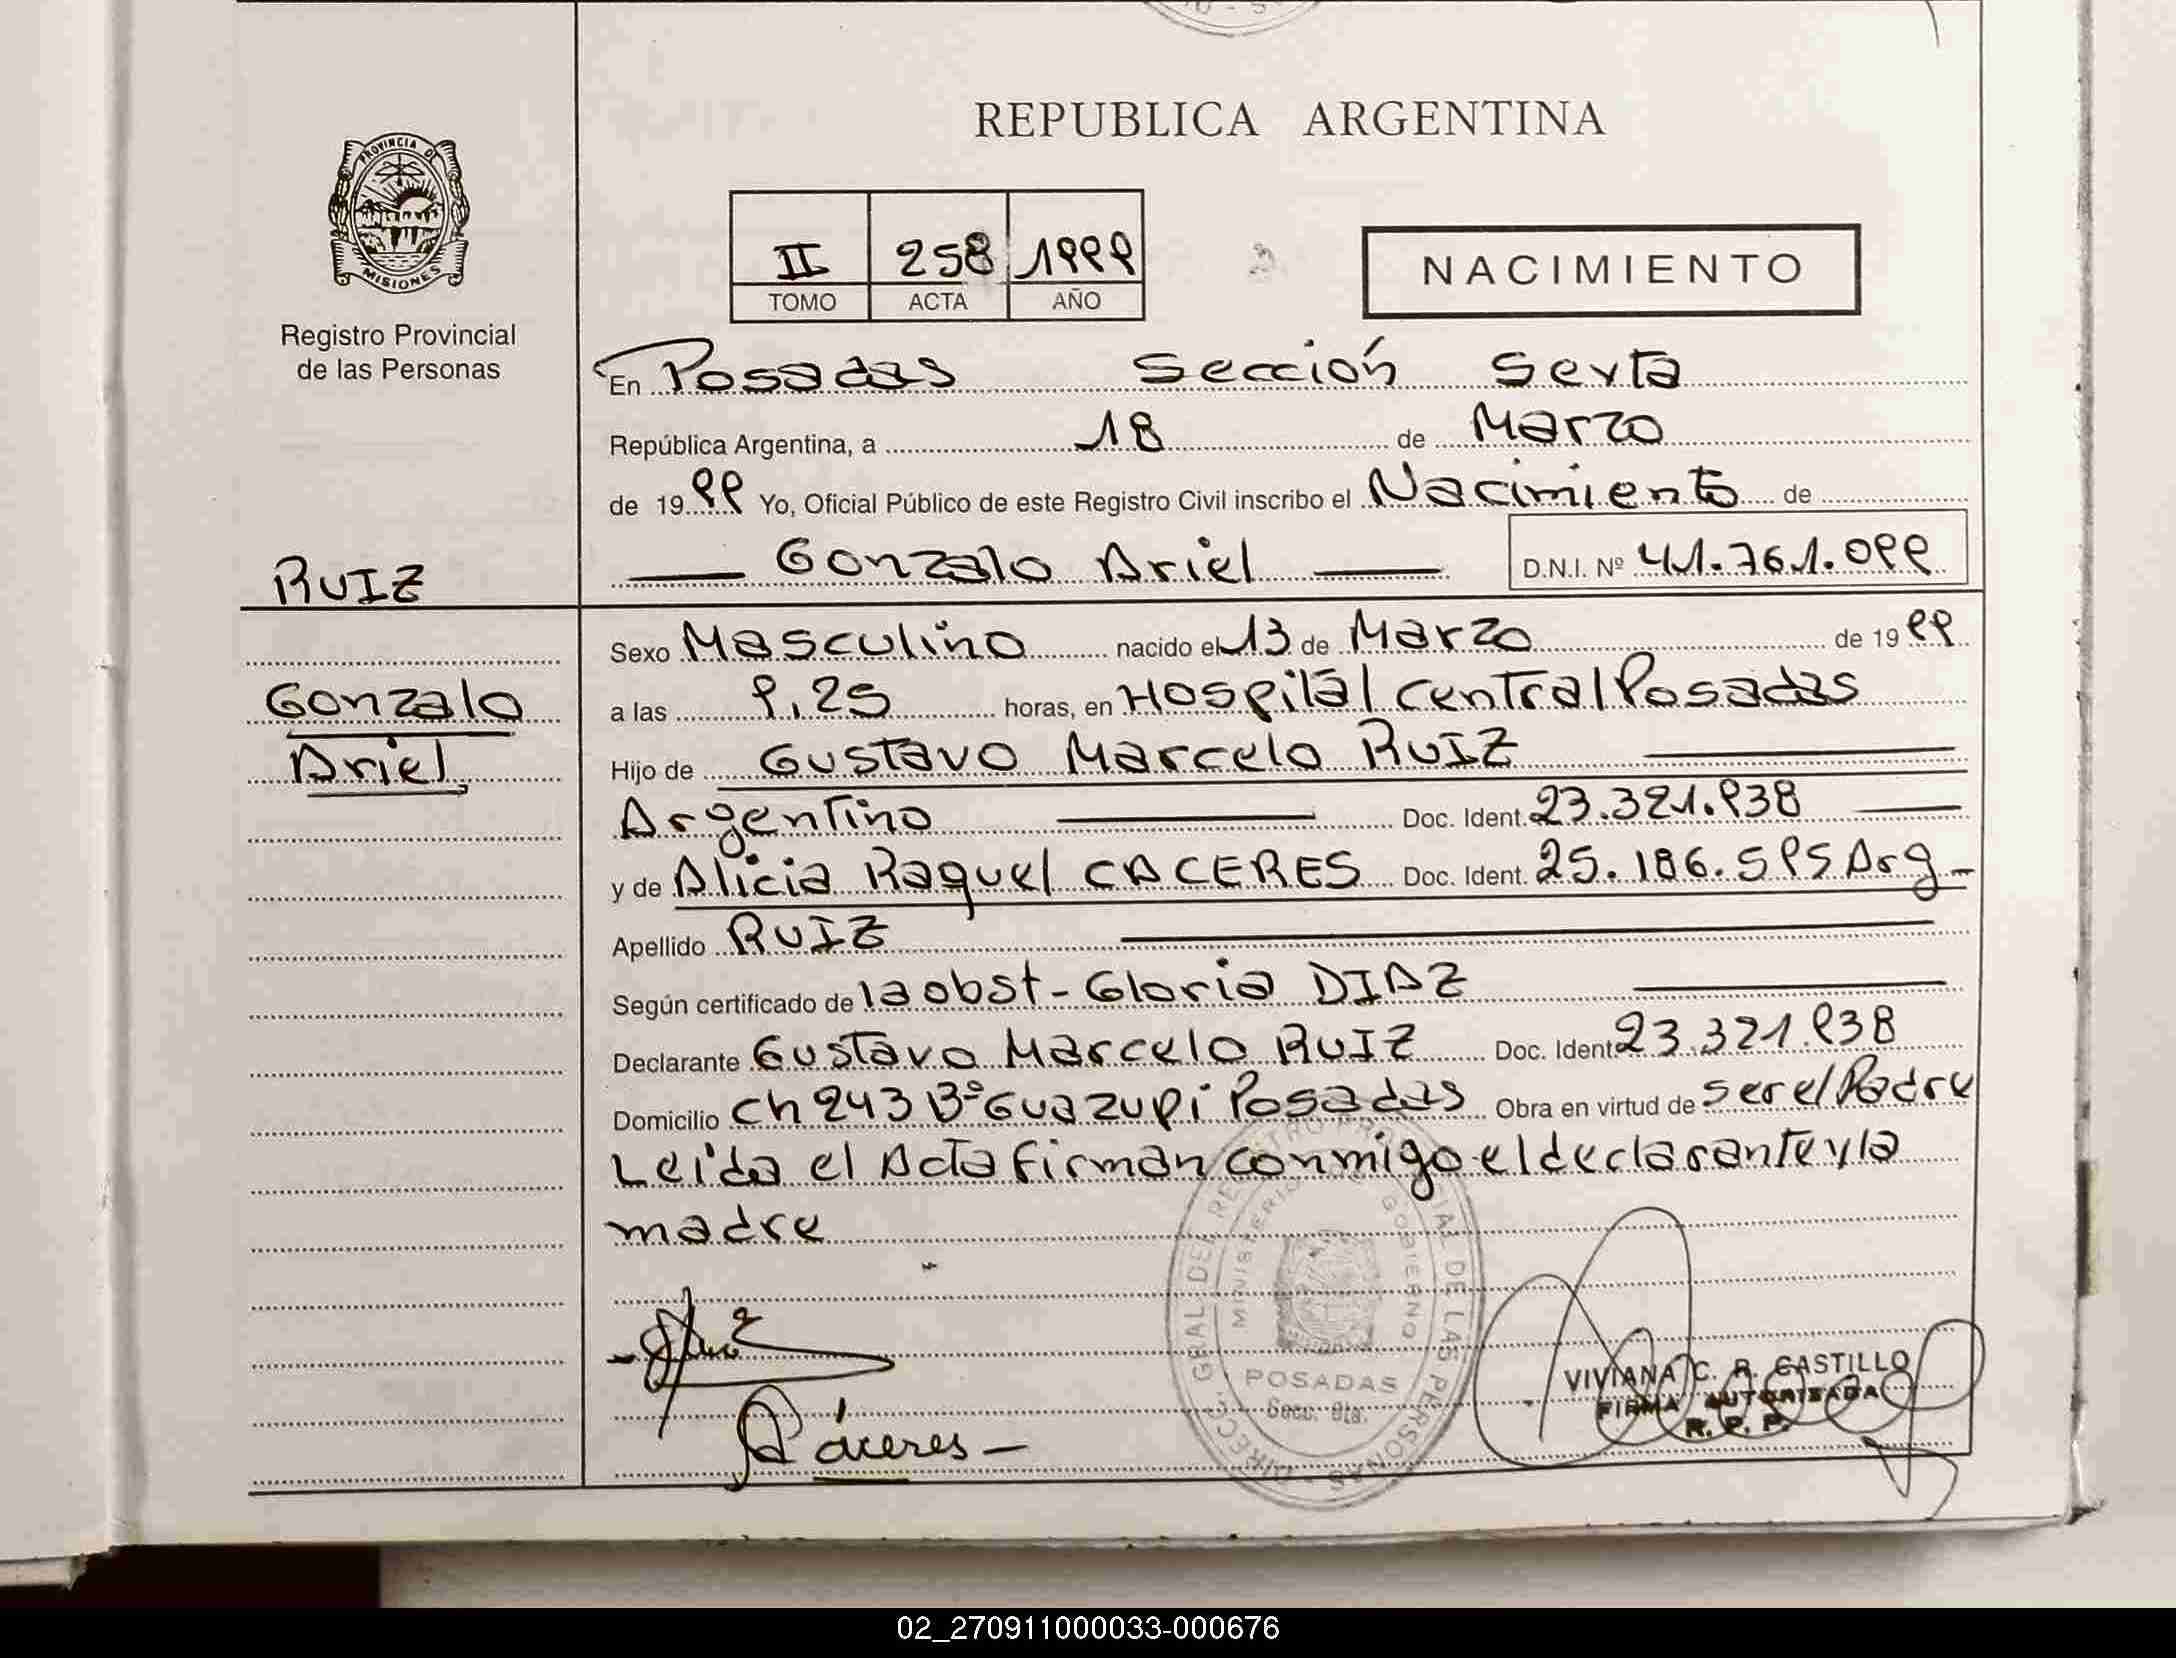 REPUBLICA ARGENTINA
PROVINCIA DE
MISIONES
Registro Provincial
de las Personas
II 258 1999
TOMO ACTA AÑO
NACIMIENTO
En Posadas Sección Sexta
República Argentina, a 18 de Marzo
de 1999 Yo, Oficial Público de este Registro Civil inscribo el Nacimiento de
Gonzalo Ariel D.N.I. Nº 41.761.099
RUIZ
Gonzalo
Ariel
Sexo Masculino nacido el 13 de Marzo de 1999
a las 9,25 horas, en Hospital Central Posadas
Hijo de Gustavo Marcelo RUIZ
Argentino Doc. Ident. 23.321.938
y de Alicia Raquel CACERES Doc. Ident. 25.186.595 Arg-
Apellido RUIZ
Según certificado de la obst- Gloria DIAZ
Declarante Gustavo Marcelo RUIZ Doc. Ident. 23.321.938
Domicilio Ch 243 Bº Guazupi Posadas Obra en virtud de ser el Padre
Leída el Acta firman conmigo el declarante y la
madre
Cáceres-
DIRECC. GRAL DEL REGISTRO PROVINCIAL DE LAS PERSONAS
MINISTERIO DE GOBIERNO
POSADAS
Secc. 6ta.
VIVIANA C. R. CASTILLO
FIRMA AUTORIZADA
R. P. P.
02_270911000033-000676